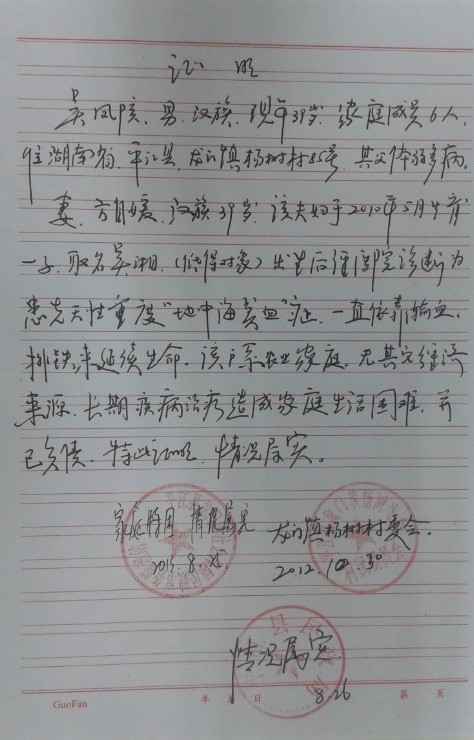 证明
吴凤院、男、汉族、现年39岁、家庭成员6人,
住湖南省、平江县、龙门镇杨树村85号、其父体弱多病。
妻、方月媛、汉族39岁、该夫妇于2010年5月生育
一子、取名吴湘、(低保对象)出生后经医院诊断为
患先天性重度"地中海贫血"症、一直依靠输血、
排铁、来延续生命、该户系农业家庭、无其它经济
来源、长期疾病治疗造成家庭生活困难、并
已负债、特此证明、情况属实。
家庭特困 情况属实 龙门镇杨树村委会.
8.25 2012.10.30
情况属实
8.26
GuoFan 年 月 第 页